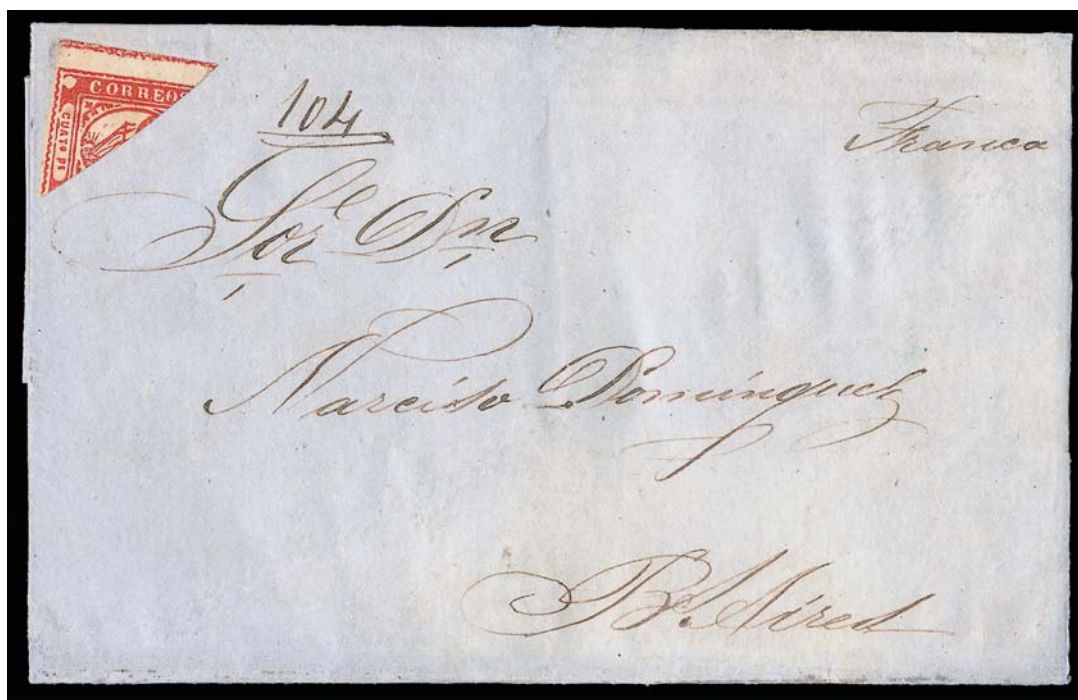 CORREOS
CUATO Ps
104
Franca
Sor Dn
Narciso Dominguez
Bs. Aires